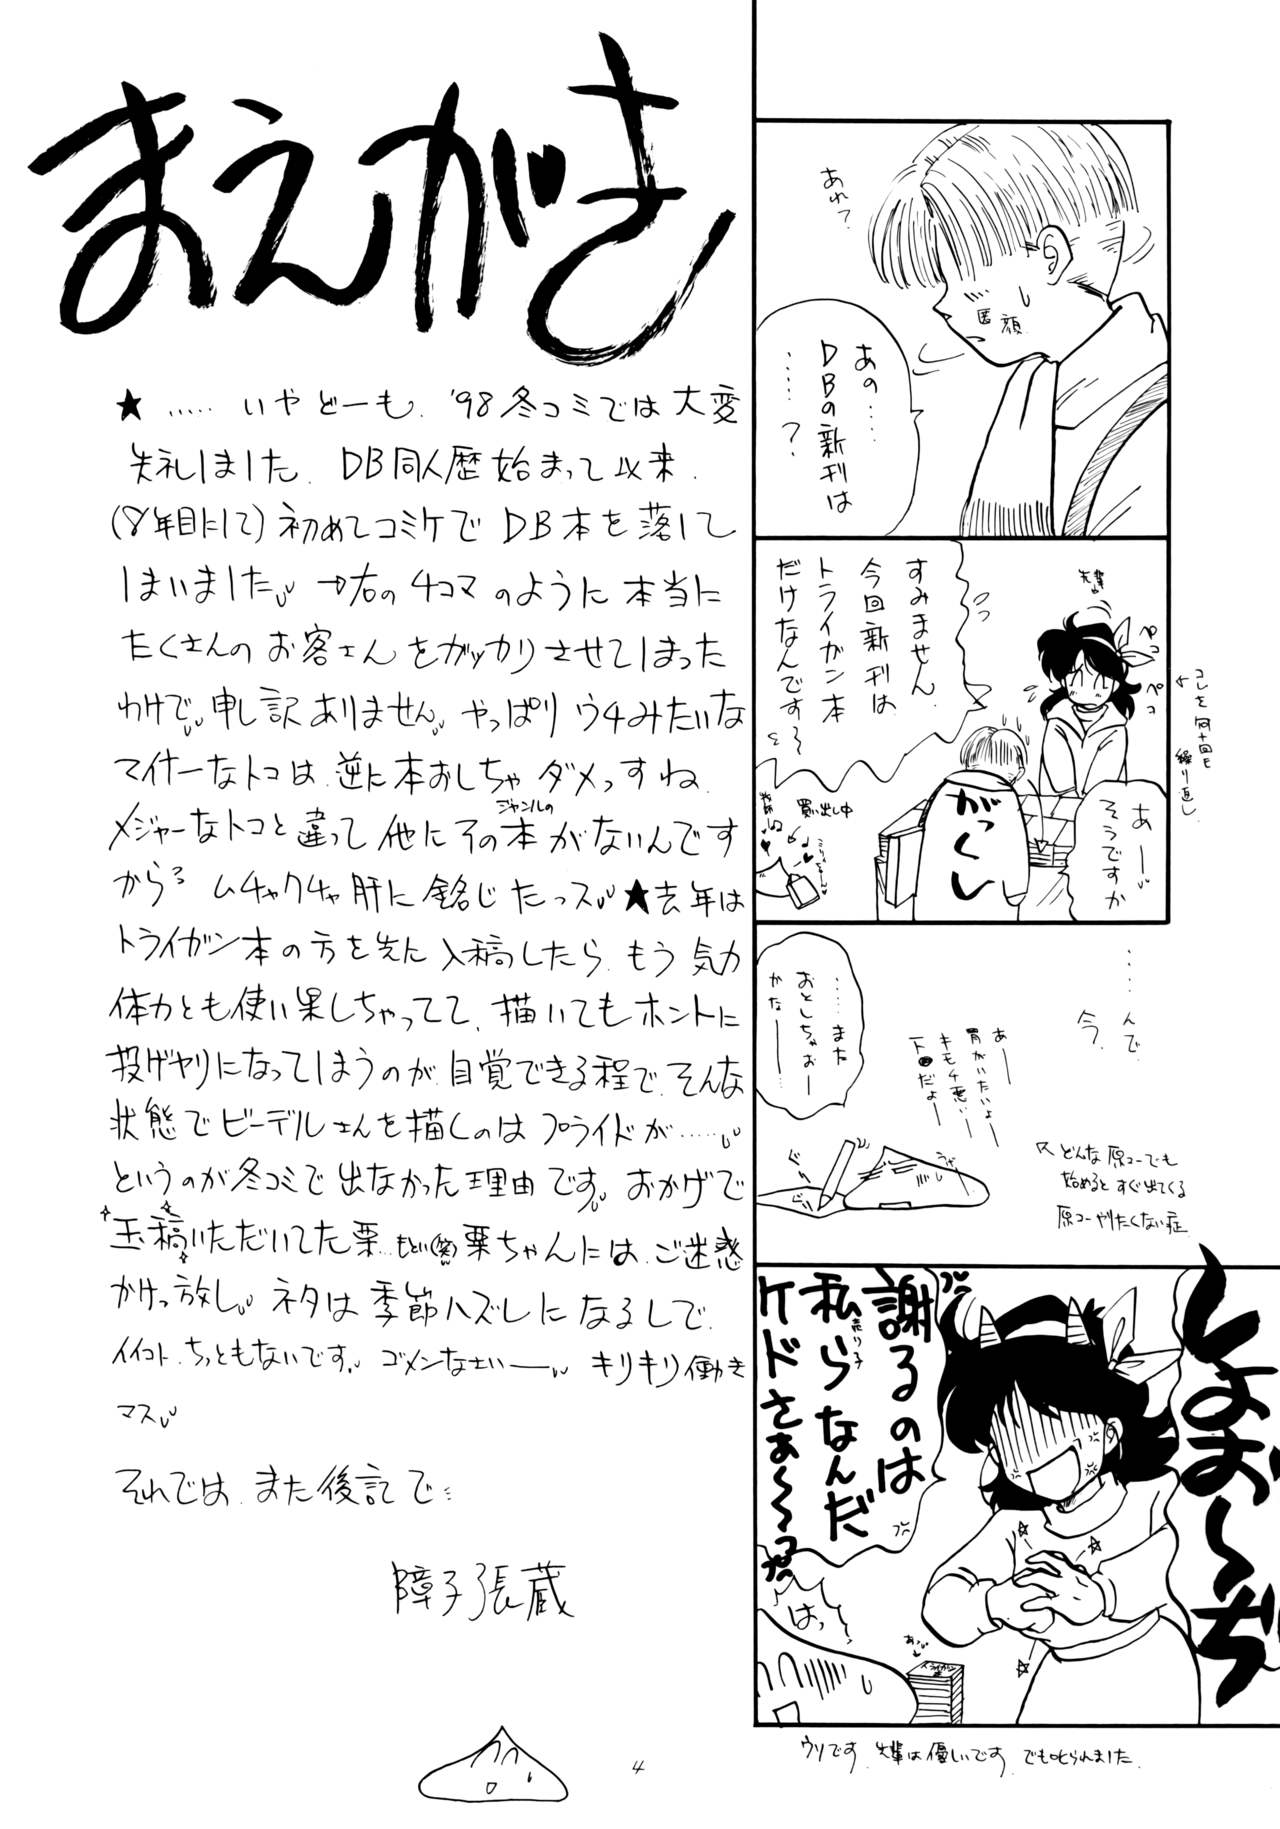 まえがき
★ ‥‥‥ いやどーも、'98冬コミでは大変
失礼しました。DB同人歴始まって以来、
(8年目にして)初めてコミケでDB本を落して
しまいました。→右の4コマのように本当に
たくさんのお客さんをガッカリさせてしまった
わけで、申し訳ありません。やっぱりウチみたいな
マイナーなトコは、逆に本おしちゃダメっすね。
メジャーなトコと違って他にそのジャンルの本がないんです
から。ムチャクチャ肝に銘じたっス。★去年は
トライガン本の方を先に入稿したら、もう気力
体力とも使い果しちゃってて、描いてもホントに
投げヤリになってしまうのが自覚できる程で、そんな
状態でビーデルさんを描くのはプライドが‥‥‥
というのが冬コミで出なかった理由です。おかげで
玉稿いただいてた栗…もとい(笑)栗ちゃんには、ご迷惑
かけっ放し。ネタは季節ハズレになるしで、
イイコト、ちっともないです。ゴメンなさいー キリキリ働き
マス
それでは、また後記で
障子張蔵
4
あれ？
匿顔
あの‥‥
DBの新刊は
‥‥‥？
先輩
ペコ
ペコ
コレを何十回も
繰り返し
すみません
今回新刊は
トライガン本
だけなんです〜
あー
そうですか
がっくし
買い出し中
‥‥‥んで、
今、
あー
胃がいたいよー
キモチ悪いー
‥‥‥また
おとしちゃおー
かなー
ぐり
ぐり
どんな原コーでも
始めるとすぐ出てくる
原コーやりたくない症
しょお〜ぢ
謝るのは
私ら売り子なんだ
ケドさぁ〜〜っ
はっ
あっ
トライガン本
ウソです。先輩は優しいです。でも叱られました。